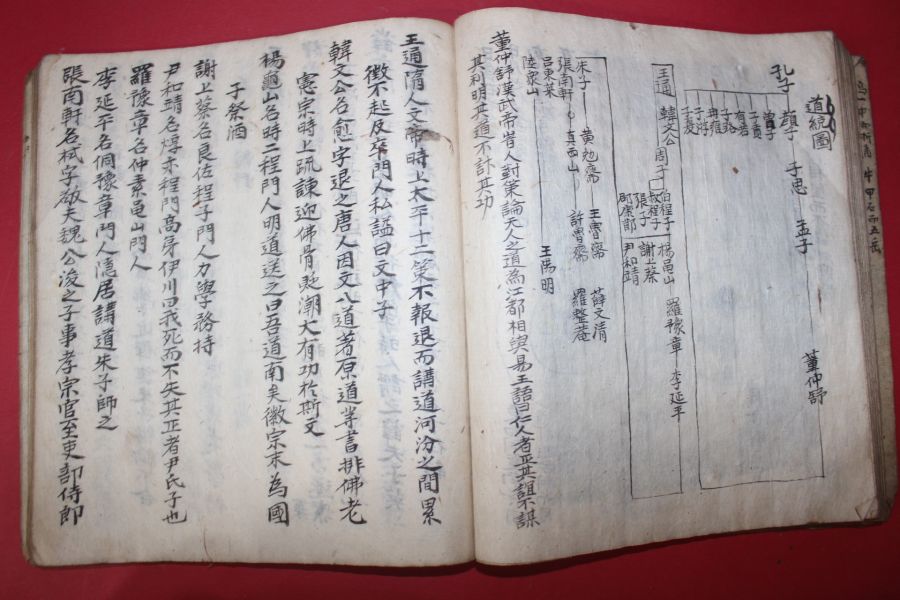 道統圖
孔子 顏子 子思 孟子 董仲舒
曾子
子貢
有若
子路
冉雍
子游
子夏
王通 韓文公 周子 伯程子 楊龜山 羅豫章 李延平
叔程子 謝上蔡
張子 尹和靖
邵康節
朱子 黃勉齋 王魯齋 薛文清
張南軒 真西山 許魯齋 羅整菴
呂東萊
陸象山 王陽明
董仲舒漢武帝時人對策論天人之道為江都相與易王語曰仁人者正其誼不謀
其利明其道不計其功
王通隋人文帝時上太平十二策不報退而講道河汾之間累
徵不起及卒門人私謚曰文中子
韓文公名愈字退之唐人因文入道著原道等書排佛老
憲宗時上疏諫迎佛骨貶潮大有功於斯文
楊龜山名時二程門人明道送之曰吾道南矣徽宗末為國
子祭酒
謝上蔡名良佐程子門人力學務持
尹和靖名焞亦程門高弟伊川曰我死而不失其正者尹氏子也
羅豫章名仲素龜山門人
李延平名侗豫章門人隱居講道朱子師之
張南軒名栻字敬夫魏公浚之子事孝宗官至吏部侍郎